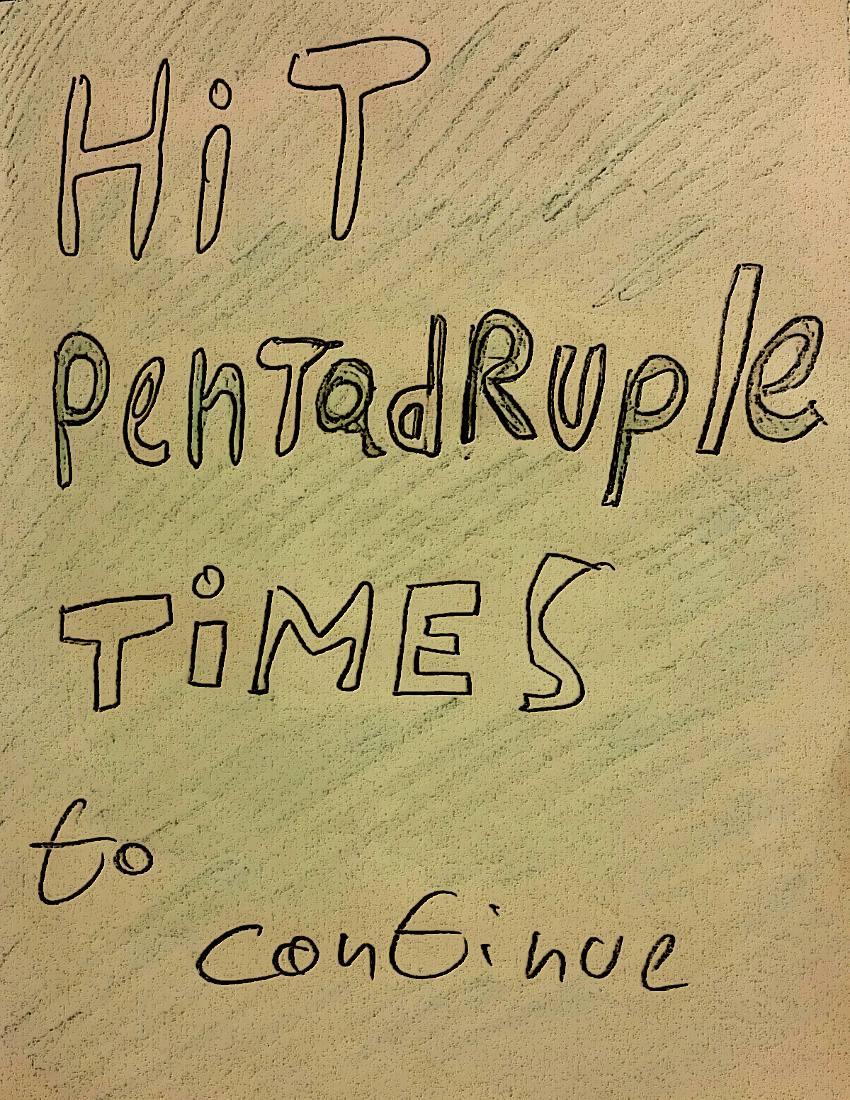 HiT
PenTadRuple
TiMES
to
continue